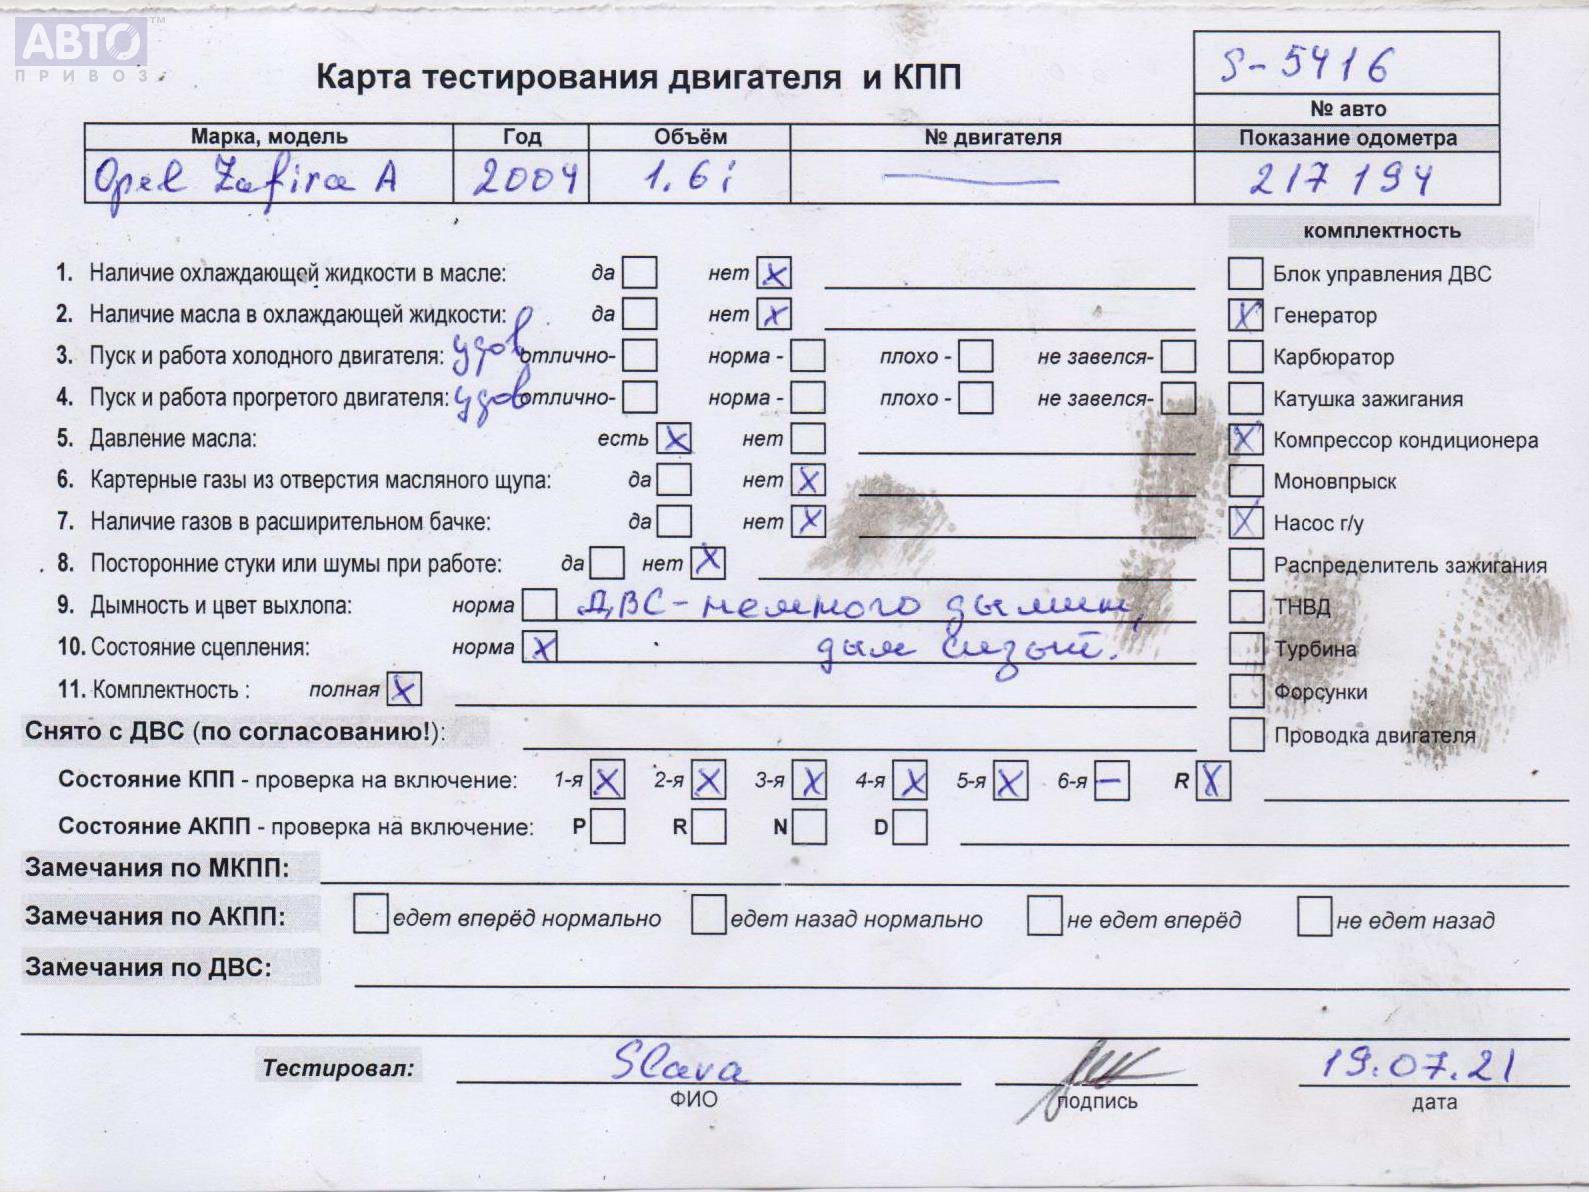 АВТО™
ПРИВОЗ
S-5416
Карта тестирования двигателя и КПП
№ авто
Марка, модель Год Объём № двигателя Показание одометра
Opel Zafira A 2004 1.6i — 217 194
комплектность
1. Наличие охлаждающей жидкости в масле: да нет X Блок управления ДВС
2. Наличие масла в охлаждающей жидкости: да нет X X Генератор
3. Пуск и работа холодного двигателя: удов отлично- норма - плохо - не завелся- Карбюратор
4. Пуск и работа прогретого двигателя: удов отлично- норма - плохо - не завелся- Катушка зажигания
5. Давление масла: есть X нет X Компрессор кондиционера
6. Картерные газы из отверстия масляного щупа: да нет X Моновпрыск
7. Наличие газов в расширительном бачке: да нет X X Насос г/у
8. Посторонние стуки или шумы при работе: да нет X Распределитель зажигания
9. Дымность и цвет выхлопа: норма ДВС - немного дымит, ТНВД
10. Состояние сцепления: норма X дым сизый. Турбина
11. Комплектность : полная X Форсунки
Снято с ДВС (по согласованию!): Проводка двигателя
Состояние КПП - проверка на включение: 1-я X 2-я X 3-я X 4-я X 5-я X 6-я — R X
Состояние АКПП - проверка на включение: P R N D
Замечания по МКПП:
Замечания по АКПП: едет вперёд нормально едет назад нормально не едет вперёд не едет назад
Замечания по ДВС:
Тестировал: Slava 19.07.21
ФИО подпись дата